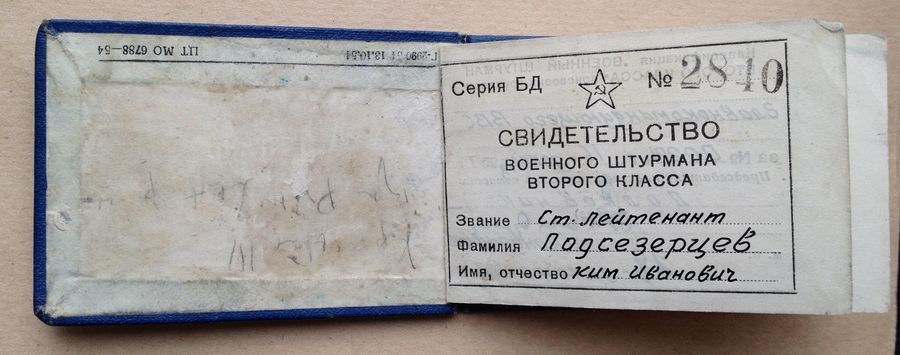 ЦТ МО 6788—54
Г-2990 34 13.10.54
Серия БД № 2840
СВИДЕТЕЛЬСТВО
ВОЕННОГО ШТУРМАНА
ВТОРОГО КЛАССА
Звание Ст. лейтенант
Фамилия Подсезерцев
Имя, отчество Ким Иванович